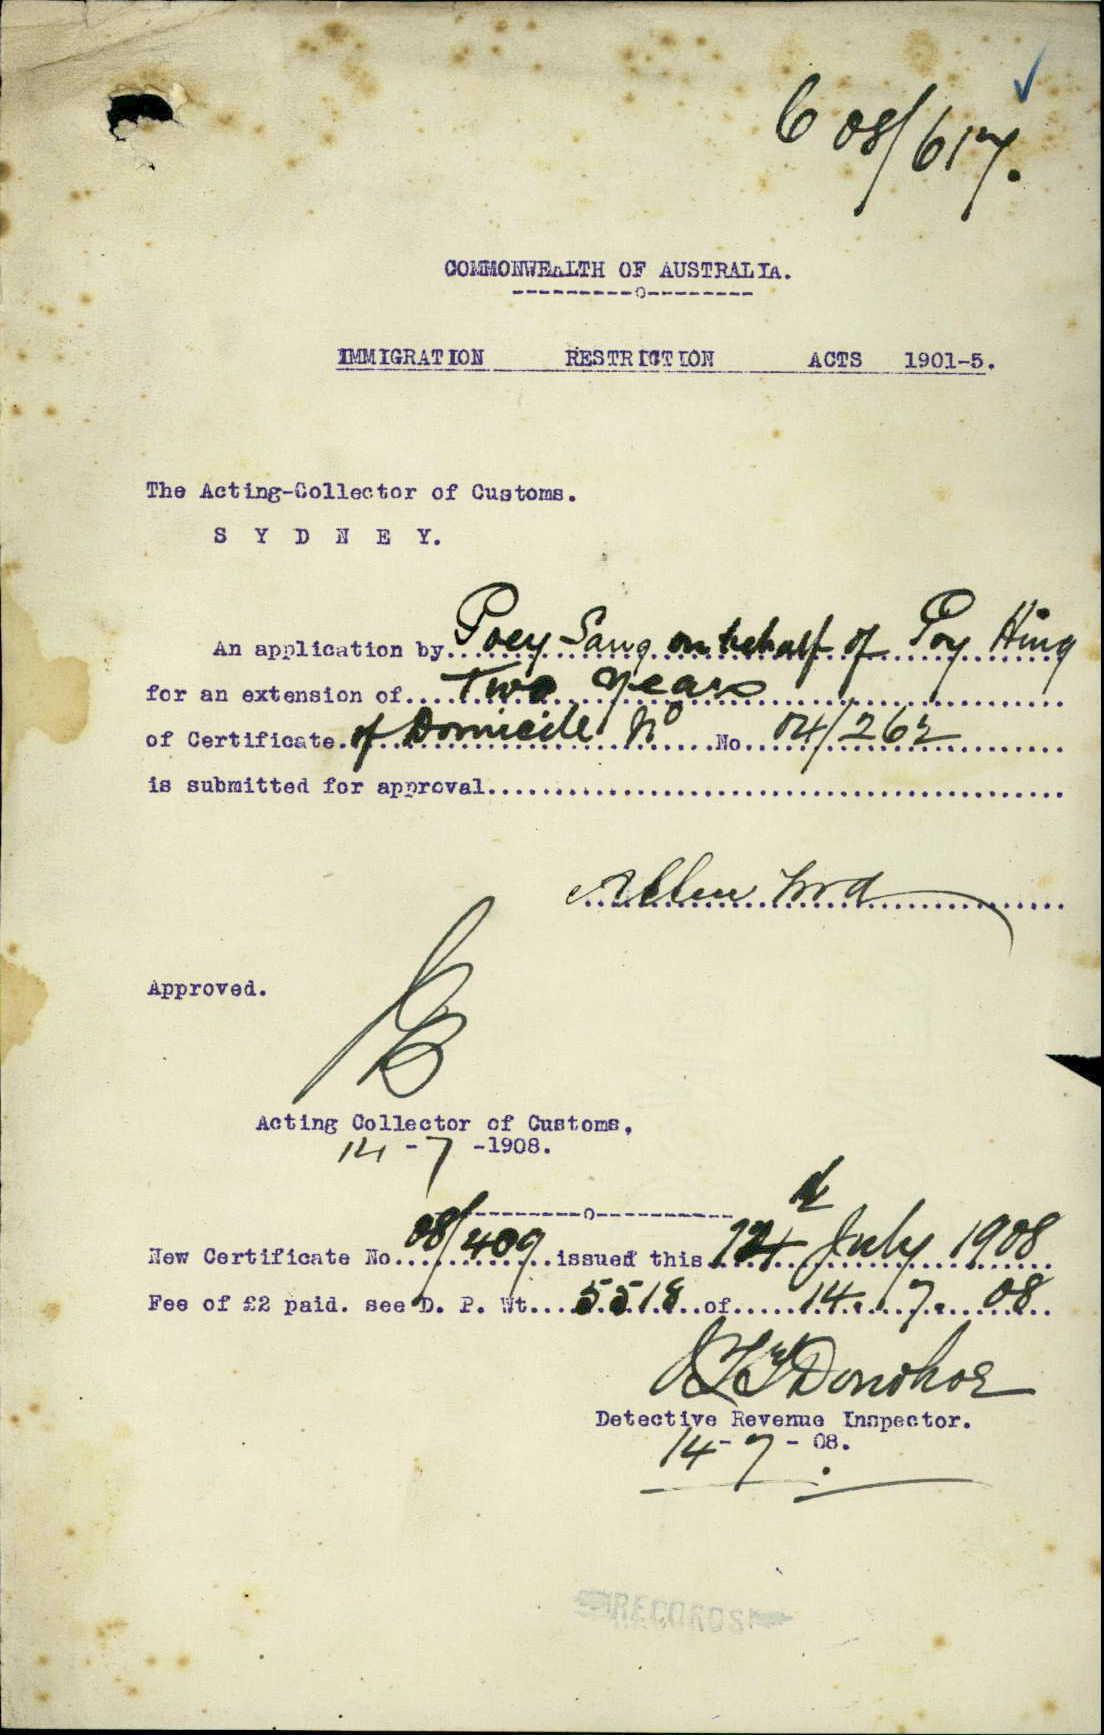 C 08/617.
COMMONWEALTH OF AUSTRALIA.
----------o---------
IMMIGRATION RESTRICTION ACTS 1901-5.
The Acting-Collector of Customs.
S Y D N E Y.
An application by Poey Sang on behalf of Poy Hing
for an extension of Two years
of Certificate of Domicile No No. 04/262
is submitted for approval
Approved.
Acting Collector of Customs.
14 - 7 -1908.
-----------o-----------
New Certificate No. 08/409 issued this 14th July 1908
Fee of £2 paid. see D. P. Wt. 5518 of 14. 7. 08
Donohoe
Detective Revenue Inspector.
14 - 7 - 08.
RECORDS